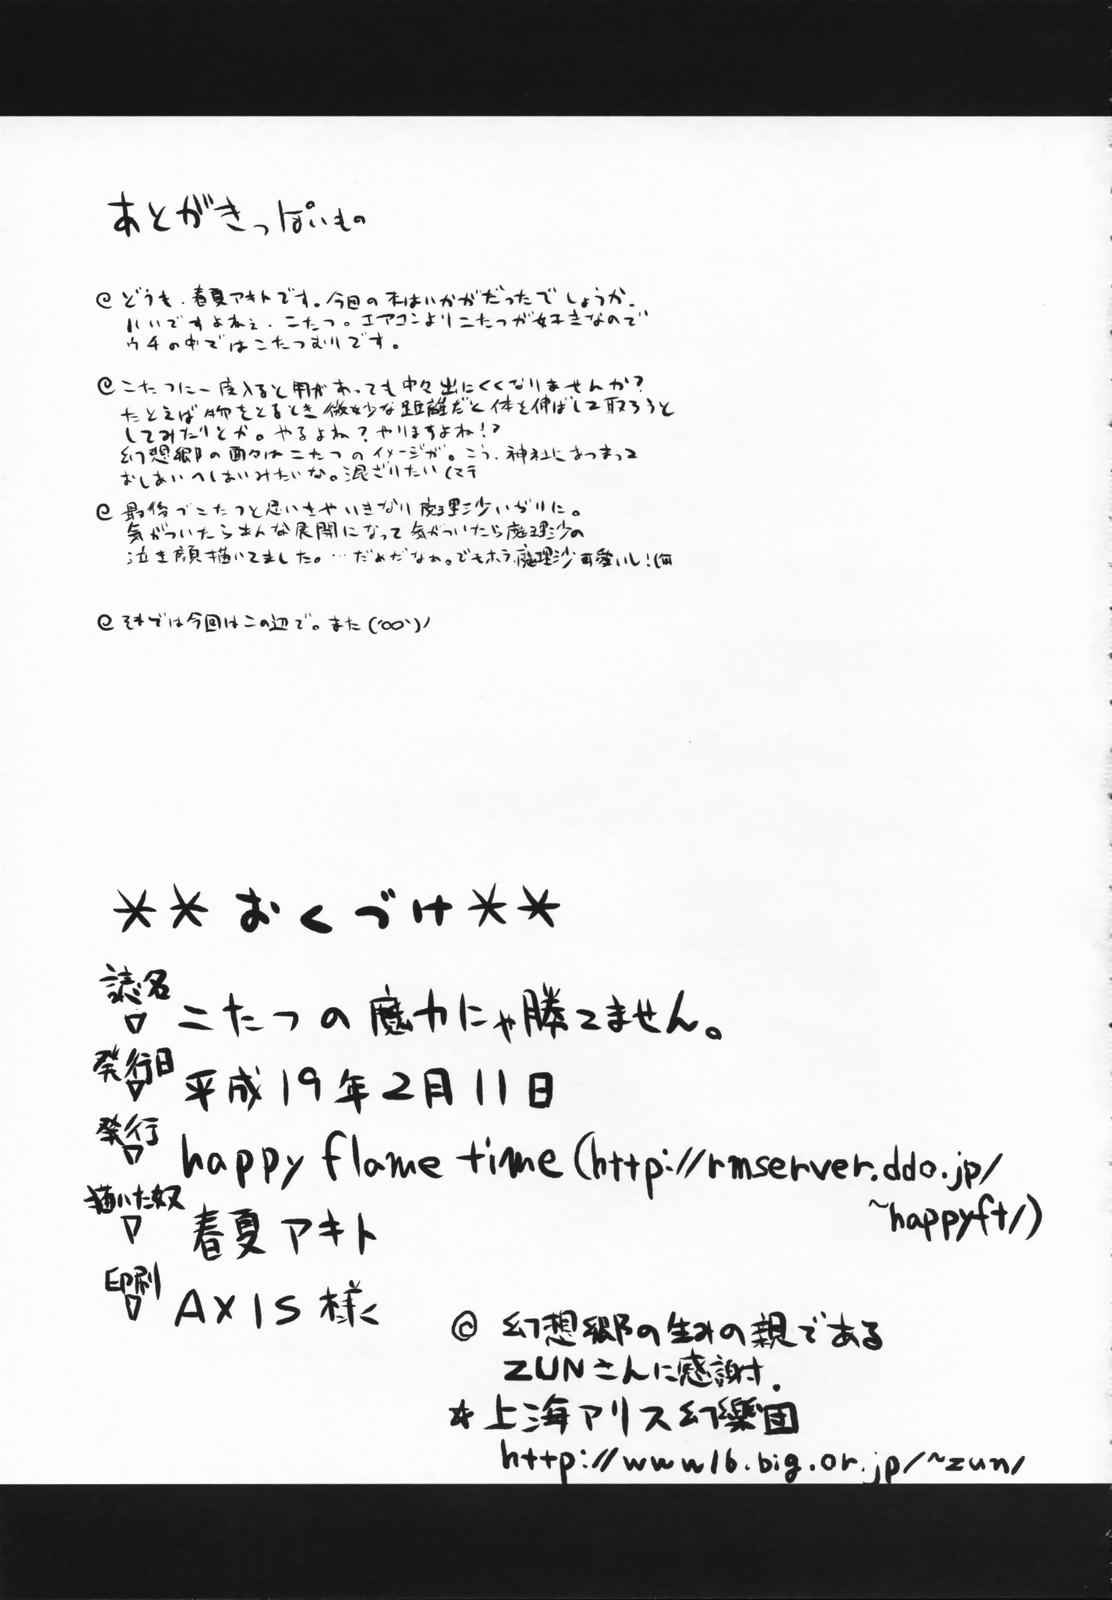 あとがきっぽいもの
@ どうも、春夏アキトです。今回の本はいかがだったでしょうか。
いいですよねぇ、こたつ。エアコンよりこたつが好きなので
ウチの中ではこたつむりです。
@ こたつに一度入ると用があっても中々出にくくなりませんか?
たとえば物をとるとき微妙な距離だと体を伸ばして取ろうと
してみたりとか。やるよね?やりますよね!?
幻想郷の面々はこたつのイメージが。こう、神社にあつまって
おしあいへしあいみたいな。混ざりたい(マテ
@ 最後でこたつと思いきやいきなり魔理沙いぢりに。
気がついたらあんな展開になって気がついたら魔理沙の
泣き顔描いてました。…だめだなぁ。でもホラ、魔理沙可愛いし!(何
@ それでは今回はこの辺で。また(´∞`)ノ
**おくづけ**
誌名
▽ こたつの魔力にゃ勝てません。
発行日
▽ 平成19年2月11日
発行
▽ happy flame time (http://rmserver.ddo.jp/
~happyft/)
描いた奴
▽ 春夏アキト
印刷
▽ AXIS 様
© 幻想郷の生みの親である
ZUNさんに感謝.
☆ 上海アリス幻樂団
http://www16.big.or.jp/~zun/